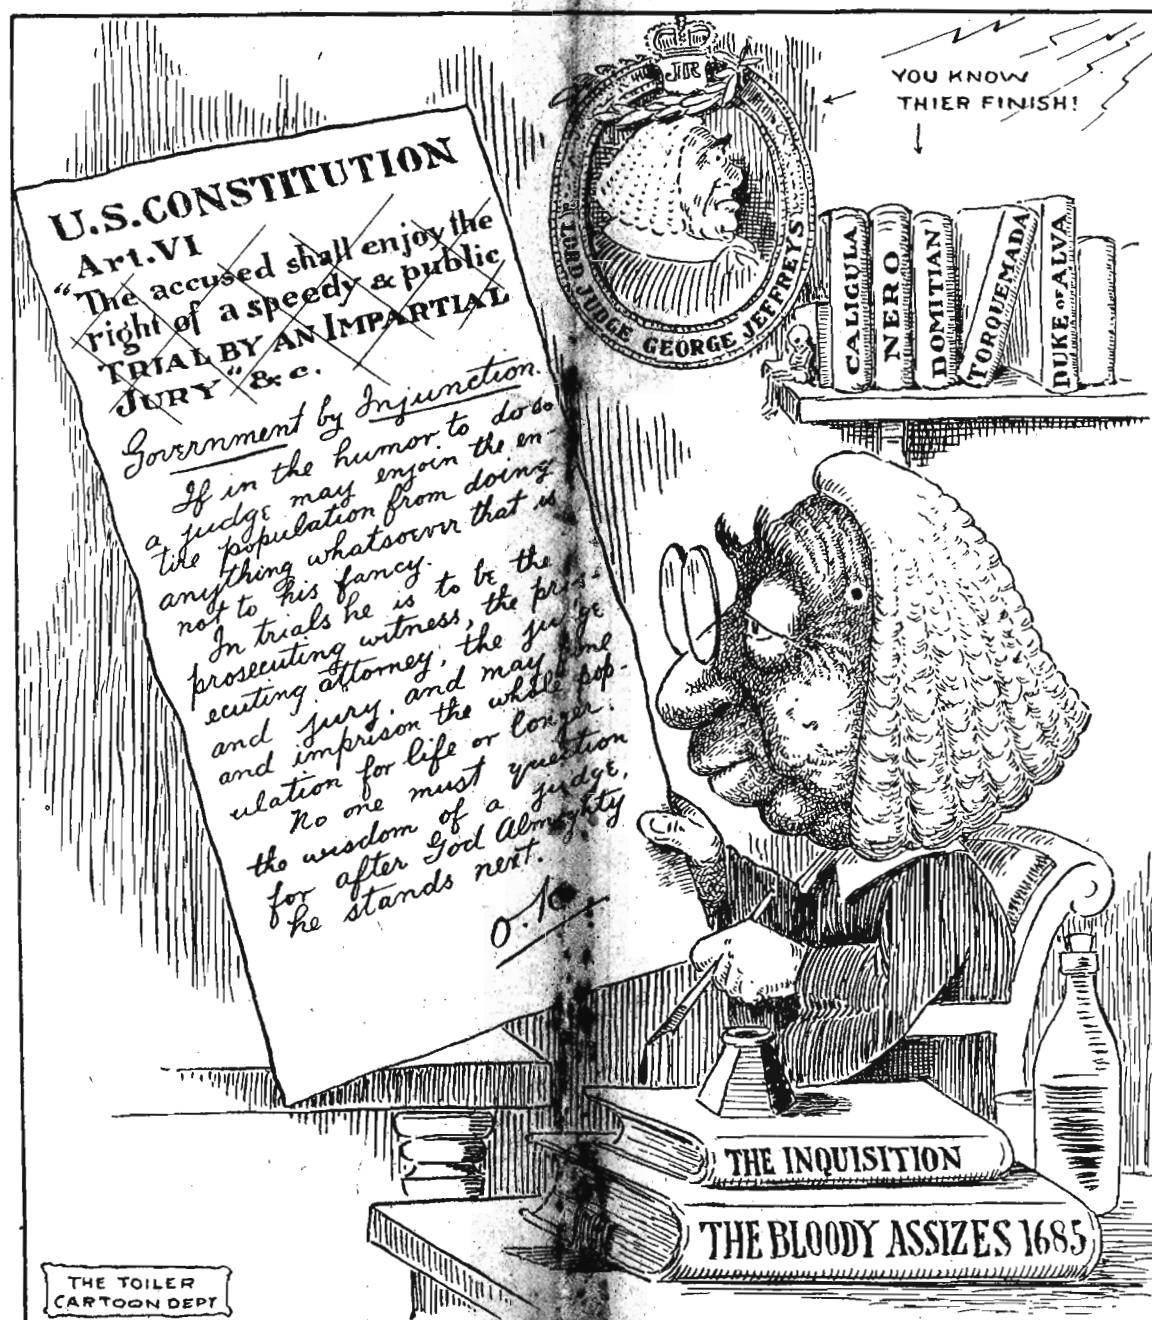 U.S.CONSTITUTION
Art.VI
"The accused shall enjoy the
right of a speedy & public
TRIAL BY AN IMPARTIAL
JURY" & c.
Government by Injunction.
If in the humor to do so
a judge may enjoin the en-
tire population from doing
anything whatsoever that is
not to his fancy.
In trials he is to be the
prosecuting witness, the pros-
ecuting attorney, the judge
and jury, and may fine
and imprison the whole pop-
ulation for life or longer.
No one must question
the wisdom of a judge,
for after God Almighty
he stands next.
O.K.
JR
LORD JUDGE GEORGE JEFFREYS
YOU KNOW
THIER FINISH!
CALIGULA
NERO
DOMITIAN
TORQUEMADA
DUKE OF ALVA
THE INQUISITION
THE BLOODY ASSIZES 1685
THE TOILER
CARTOON DEPT